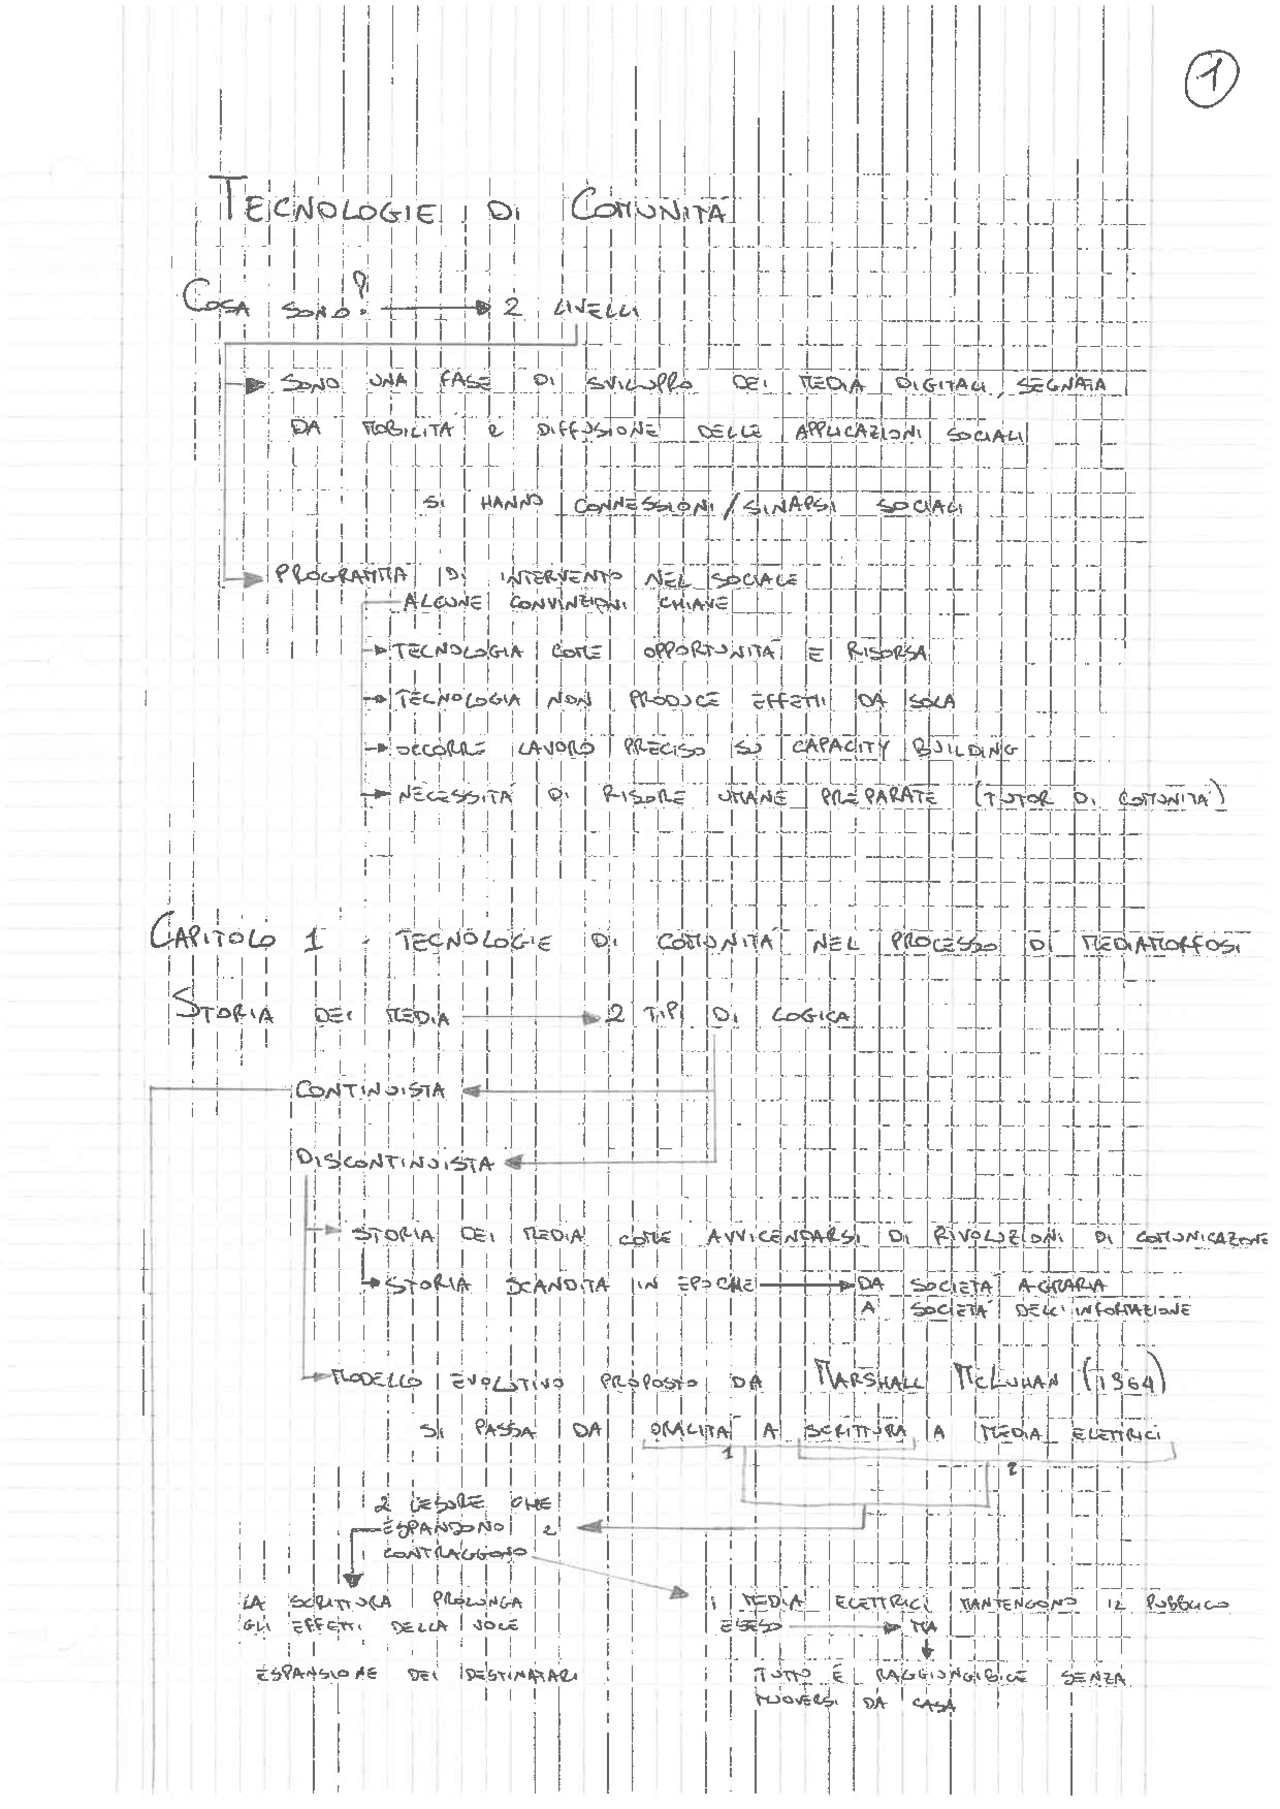 1
TECNOLOGIE DI COMUNITÀ
COSA SONO? 2 LIVELLI
SONO UNA FASE DI SVILUPPO DEI MEDIA DIGITALI, SEGNATA
DA MOBILITÀ E DIFFUSIONE DELLE APPLICAZIONI SOCIALI
SI HANNO CONNESSIONI/SINAPSI SOCIALI
PROGRAMMA DI INTERVENTO NEL SOCIALE
ALCUNE CONVINZIONI CHIAVE
TECNOLOGIA COME OPPORTUNITÀ E RISORSA
TECNOLOGIA NON PRODUCE EFFETTI DA SOLA
OCCORRE LAVORO PRECISO SU CAPACITY BUILDING
NECESSITÀ DI RISORE UMANE PREPARATE (TUTOR DI COMUNITÀ)
CAPITOLO 1 - TECNOLOGIE DI COMUNITÀ NEL PROCESSO DI MEDIAMORFOSI
STORIA DEI MEDIA 2 TIPI DI LOGICA
CONTINUISTA
DISCONTINUISTA
STORIA DEI MEDIA COME AVVICENDARSI DI RIVOLUZIONI DI COMUNICAZIONE
STORIA SCANDITA IN EPOCHE DA SOCIETÀ AGRARIA
A SOCIETÀ DELL'INFORMAZIONE
MODELLO EVOLUTIVO PROPOSTO DA MARSHALL MCLUHAN (1964)
SI PASSA DA ORALITÀ A SCRITTURA A MEDIA ELETTRICI
1 2
2 CESURE CHE
ESPANDONO E
CONTRAGGONO
LA SCRITTURA PROLUNGA
GLI EFFETTI DELLA VOCE
ESPANSIONE DEI DESTINATARI
I MEDIA ELETTRICI MANTENGONO IL PUBBLICO
ESESO MA
TUTTO È RAGGIUNGIBILE SENZA
MUOVERSI DA CASA